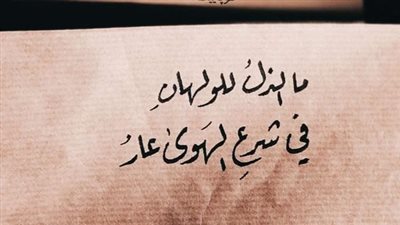 ما الذلُ للولهانِ
في شرعِ الهَوىٰ عارُ